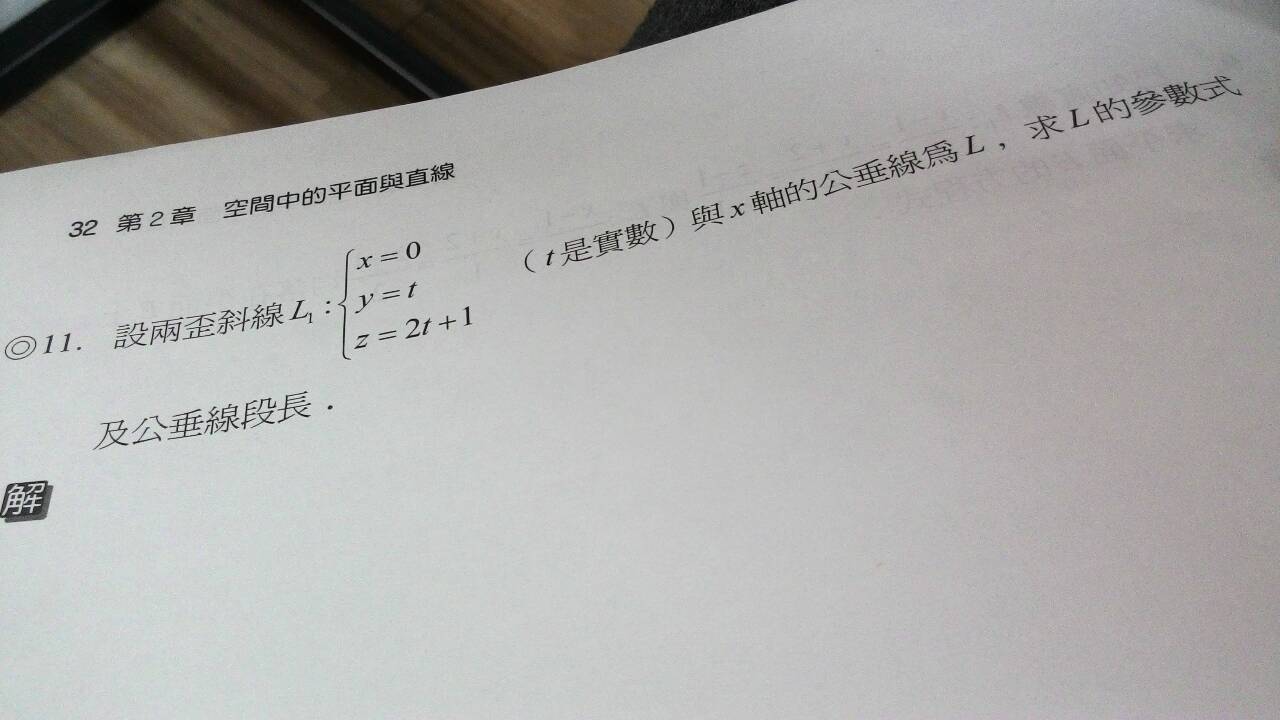 32 第2章 空間中的平面與直線
◎11. 設兩歪斜線 L₁：{x=0, y=t, z=2t+1 （t是實數）與 x 軸的公垂線爲 L，求 L 的參數式
及公垂線段長．
解